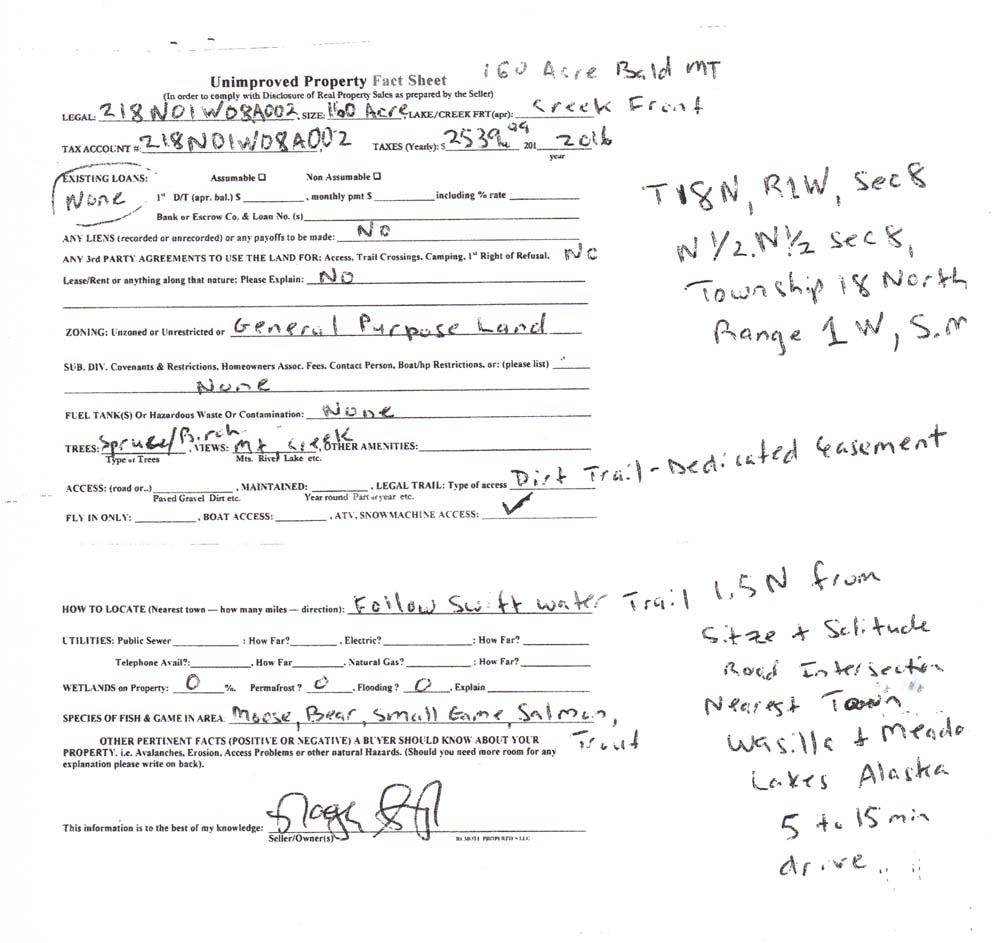 160 Acre Bald MT
Unimproved Property Fact Sheet
(In order to comply with Disclosure of Real Property Sales as prepared by the Seller)
LEGAL: 218N01W08A002, SIZE: 160 Acre, LAKE/CREEK FRT(apr): Creek Front
TAX ACCOUNT #: 218N01W08A002 TAXES (Yearly): $ 2539.99 201 2016
year
EXISTING LOANS: Assumable ☐ Non Assumable ☐
None 1st D/T (apr. bal.) $ , monthly pmt $ including % rate
Bank or Escrow Co. & Loan No. (s)
ANY LIENS (recorded or unrecorded) or any payoffs to be made: No
ANY 3rd PARTY AGREEMENTS TO USE THE LAND FOR: Access, Trail Crossings, Camping, 1st Right of Refusal, No
Lease/Rent or anything along that nature: Please Explain: No
T18N, R1W, Sec 8
N 1/2, N 1/2 Sec 8,
Township 18 North
Range 1 W, S.M
ZONING: Unzoned or Unrestricted or General Purpose Land
SUB. DIV. Covenants & Restrictions, Homeowners Assoc. Fees, Contact Person, Boat/hp Restrictions, or: (please list)
None
FUEL TANK(S) Or Hazardous Waste Or Contamination: None
TREES: Spruce/Birch, VIEWS: Mt, Creek, OTHER AMENITIES:
Type of Trees Mts. River Lake etc.
ACCESS: (road or..) , MAINTAINED: , LEGAL TRAIL: Type of access Dirt Trail - Dedicated Easement
Paved Gravel Dirt etc. Year round Part of year etc.
FLY IN ONLY: , BOAT ACCESS: , ATV, SNOWMACHINE ACCESS: ✓
HOW TO LOCATE (Nearest town — how many miles — direction): Follow Swift water Trail 1.5 N from
Sitze + Solitude
Road Intersection
Nearest Town
Wasilla + Meado
Lakes Alaska
5 to 15 min
drive
UTILITIES: Public Sewer : How Far? , Electric? : How Far?
Telephone Avail?: , How Far , Natural Gas? : How Far?
WETLANDS on Property: 0 %, Permafrost ? 0 , Flooding ? 0 , Explain
SPECIES OF FISH & GAME IN AREA: Moose, Bear, Small Game, Salmon,
Trout
OTHER PERTINENT FACTS (POSITIVE OR NEGATIVE) A BUYER SHOULD KNOW ABOUT YOUR
PROPERTY. i.e. Avalanches, Erosion, Access Problems or other natural Hazards. (Should you need more room for any
explanation please write on back).
This information is to the best of my knowledge:
Seller/Owner(s)